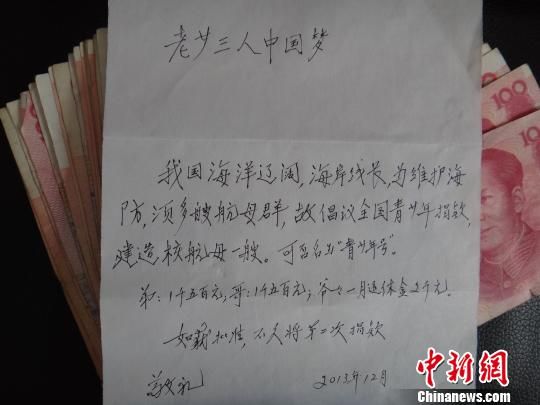 老少三人中国梦
我国海洋辽阔,海岸线长,为维护海
防,须多艘航母群,故倡议全国青少年捐款,
建造核航母一艘。可否名为"青少年号"。
弟:1千五百元,哥:1千五百元,爷爷一月退休金2千元。
如蒙批准,不久将第二次捐款
敬礼
2013年12月
100
100
100
中新网
WWW.CHINANEWS.COM